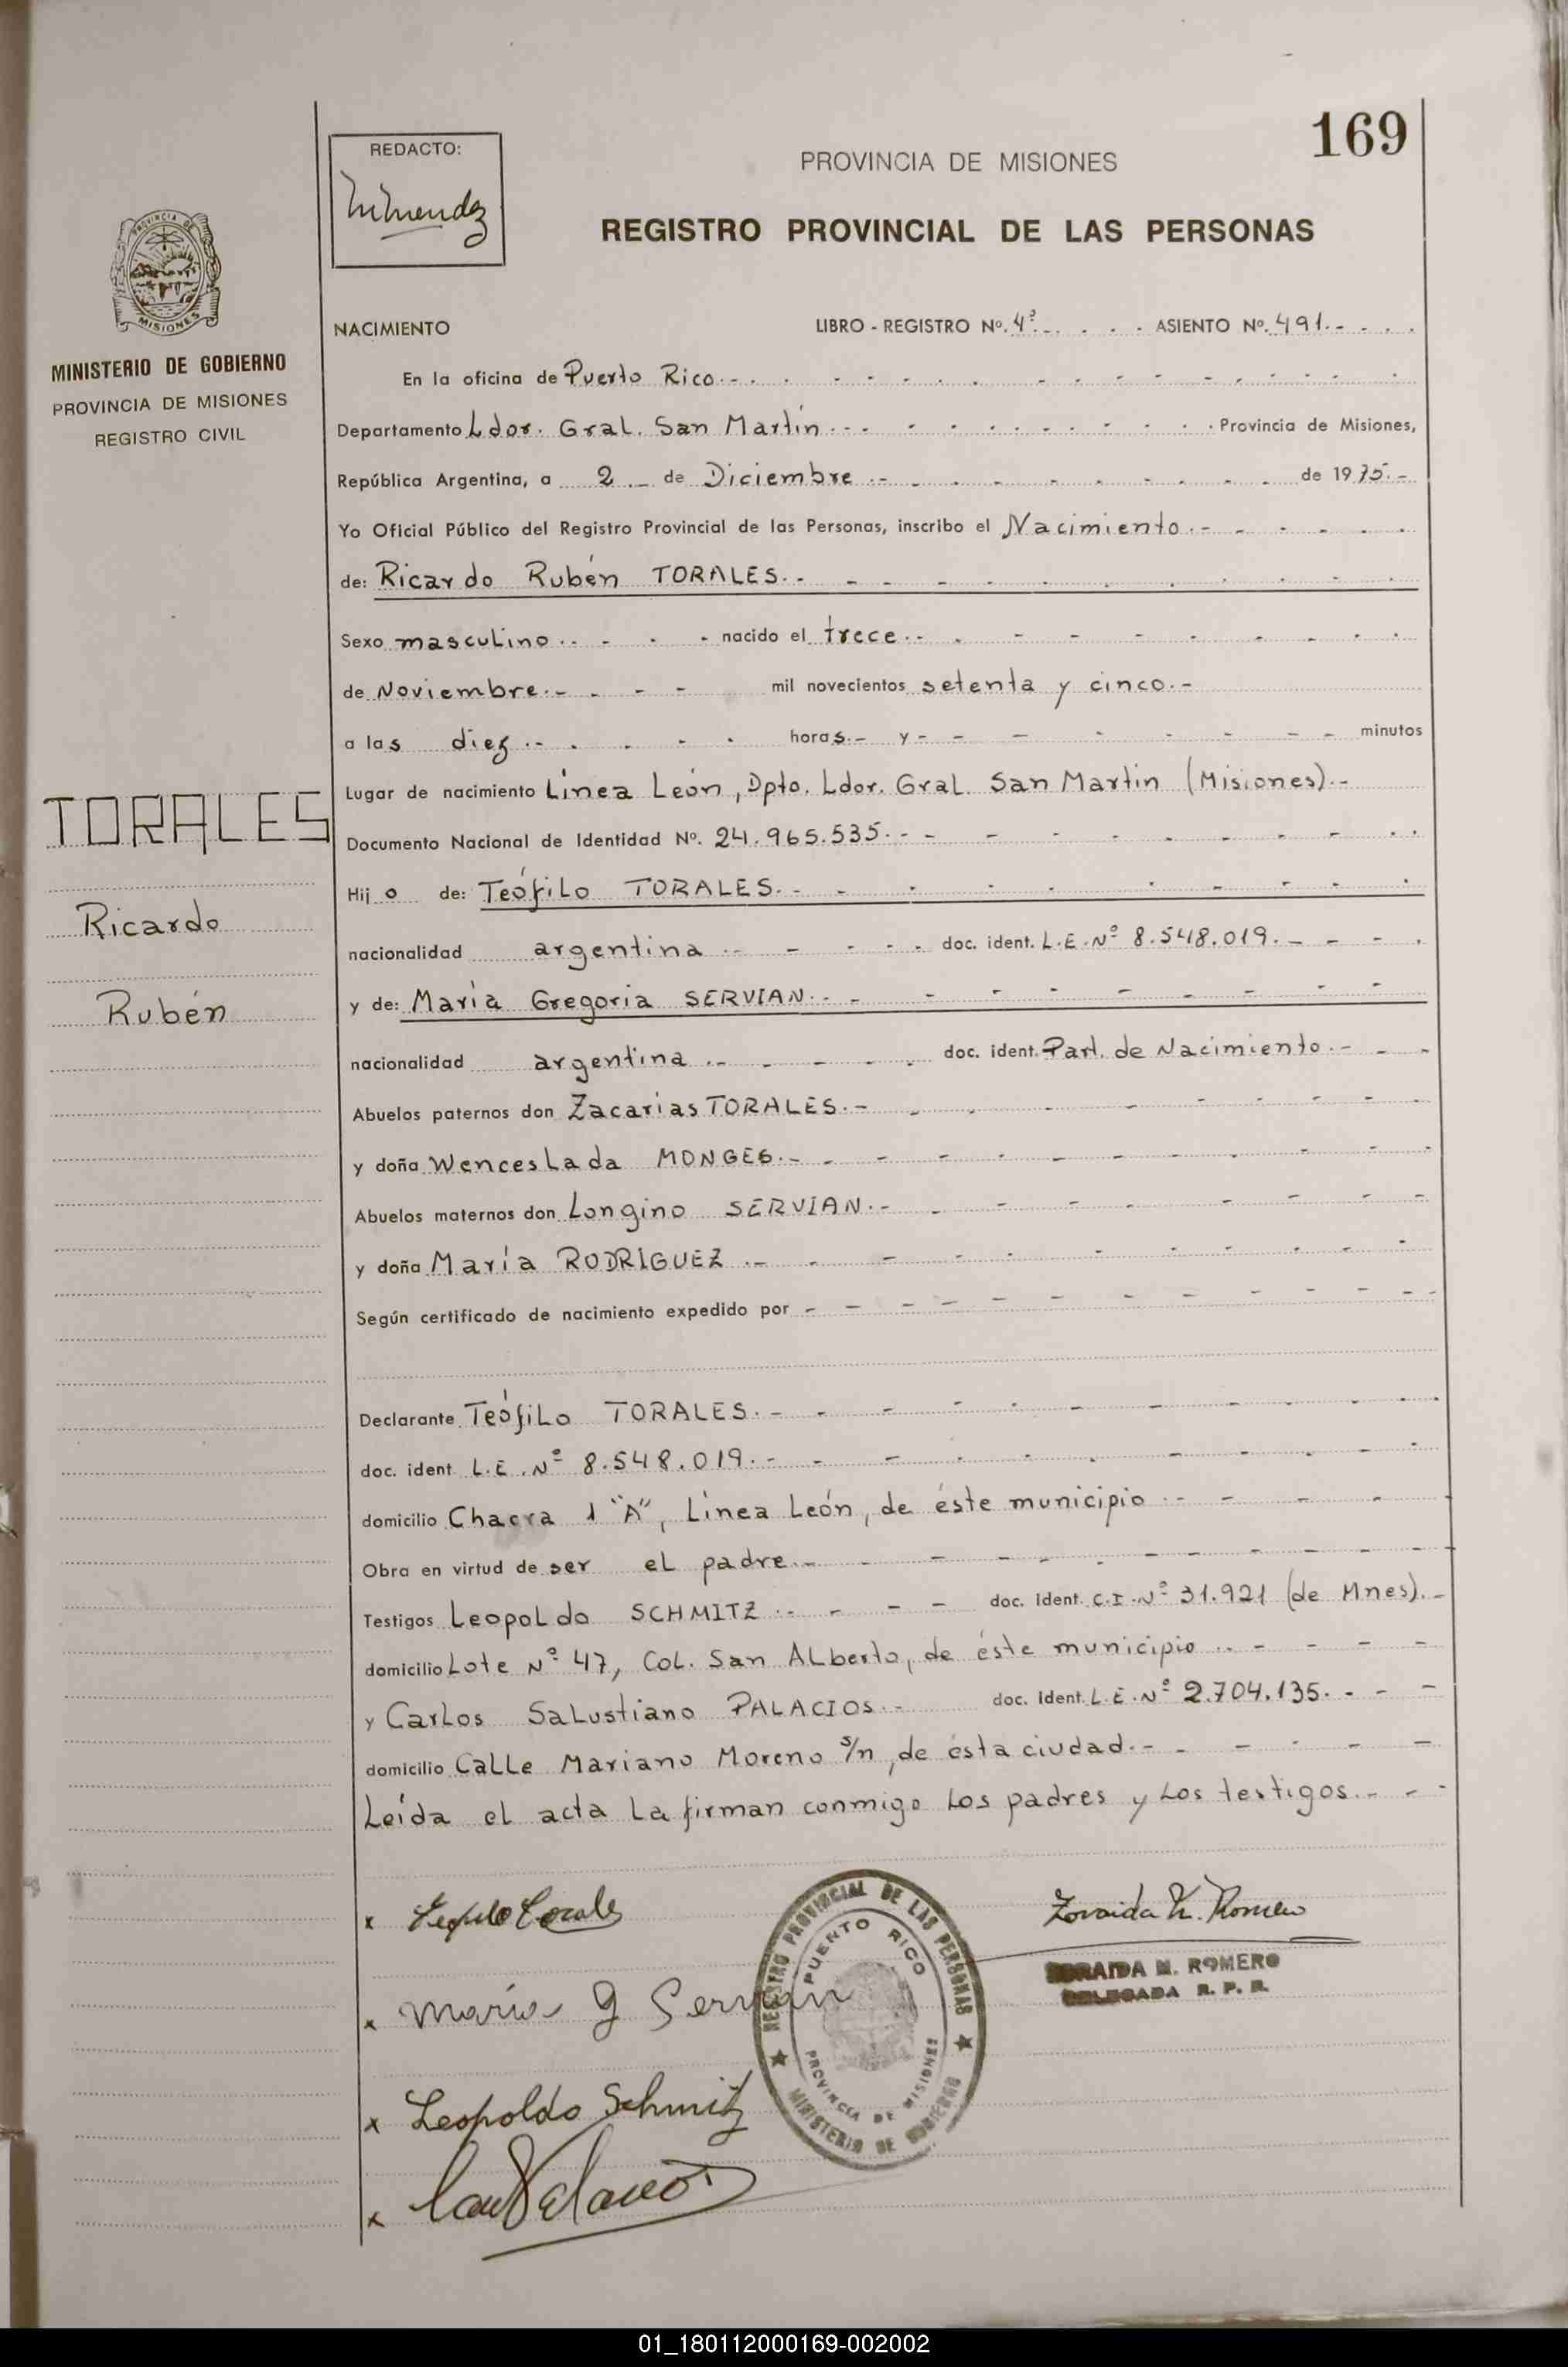 169
REDACTO:
PROVINCIA DE MISIONES
REGISTRO PROVINCIAL DE LAS PERSONAS
PROVINCIA DE
MISIONES
MINISTERIO DE GOBIERNO
PROVINCIA DE MISIONES
REGISTRO CIVIL
TORALES
Ricardo
Rubén
NACIMIENTO LIBRO - REGISTRO Nº. 4º.- ASIENTO Nº. 491.-
En la oficina de Puerto Rico.-
Departamento Ldor. Gral. San Martín.- Provincia de Misiones,
República Argentina, a 2.- de Diciembre.- de 1975.-
Yo Oficial Público del Registro Provincial de las Personas, inscribo el Nacimiento.-
de: Ricardo Rubén TORALES.-
Sexo masculino.- nacido el trece.-
de Noviembre.- mil novecientos setenta y cinco.-
a las diez.- horas.- y - minutos
Lugar de nacimiento Línea León, Dpto. Ldor. Gral. San Martin (Misiones).-
Documento Nacional de Identidad Nº. 24.965.535.-
Hijo de: Teófilo TORALES.-
nacionalidad argentina.- doc. ident. L.E.Nº 8.548.019.-
y de: María Gregoria SERVIAN.-
nacionalidad argentina.- doc. ident. Part. de Nacimiento.-
Abuelos paternos don Zacarías TORALES.-
y doña Wenceslada MONGES.-
Abuelos maternos don Longino SERVIAN.-
y doña María RODRÍGUEZ.-
Según certificado de nacimiento expedido por -
Declarante Teófilo TORALES.-
doc. ident L.E.Nº 8.548.019.-
domicilio Chacra 1 "A", Línea León, de éste municipio.-
Obra en virtud de ser el padre.-
Testigos Leopoldo SCHMITZ.- doc. ident. C.I.Nº 31.921 (de Mnes).-
domicilio Lote Nº 47, Col. San Alberto, de éste municipio.-
y Carlos Salustiano PALACIOS.- doc. ident. L.E.Nº 2.704.135.-
domicilio Calle Mariano Moreno s/n, de ésta ciudad.-
Leída el acta la firman conmigo los padres y los testigos.-
x Teofilo Torales
Zoraida M. Romero
ZORAIDA M. ROMERO
DELEGADA R. P. P.
x María G Servian
REGISTRO PROVINCIAL DE LAS PERSONAS
PUERTO RICO
PROVINCIA DE MISIONES
MINISTERIO DE GOBIERNO
x Leopoldo Schmitz
x
01_180112000169-002002